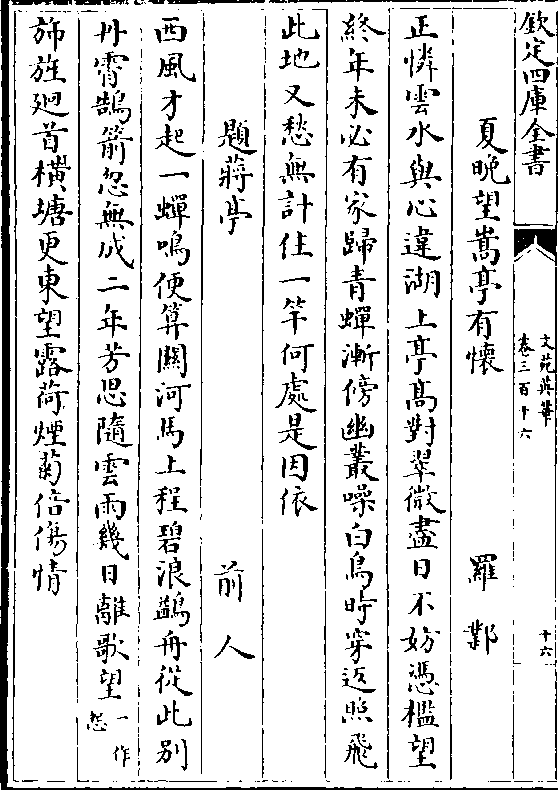 欽定四庫全書
文苑英華
卷三百十六
十六
夏晚望嵩亭有懷 羅鄴
正憐雲水與心違湖上亭高對翠微盡日不妨憑檻望
終年未必有家歸青蟬漸傍幽叢噪白鳥時穿返照飛
此地又愁無計住一竿何處是因依
題蔣亭 前人
西風才起一蟬鳴便算關河馬上程碧浪鷁舟從此別
丹霄鵠箭忽無成二年芳思隨雲雨幾日離歌望一作怨
斾旌廻首橫塘更東望露荷煙菊倍傷情